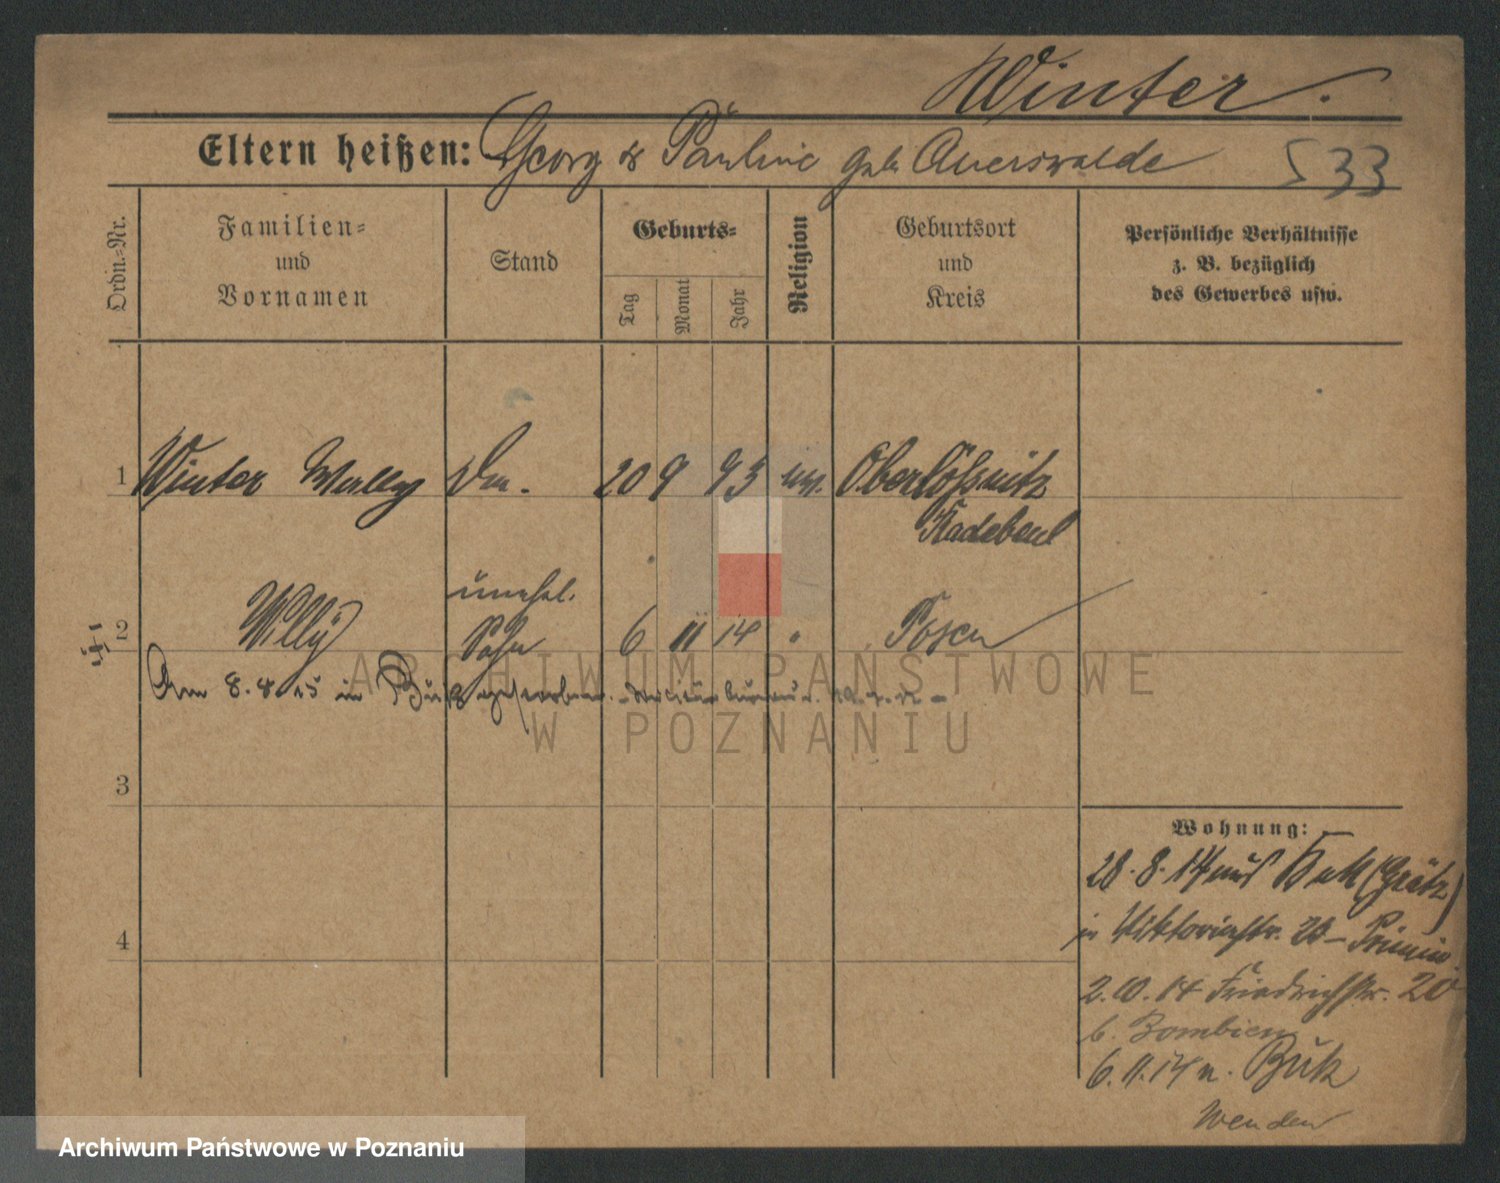 Winter.
Eltern heißen: Georg & Pauline geb. Auerswalde 533
Ordn.=Nr.
Familien=
und
Vornamen
Stand
Geburts=
Tag
Monat
Jahr
Religion
Geburtsort
und
Kreis
Persönliche Verhältnisse
z. B. bezüglich
des Gewerbes usw.
1 Winter Wally 20 9 93 Oberlößnitz
Radebeul
unehel.
2 Willy Sohn 6 11 14 " Posen
Am 8.8.15 in Buk gestorben.
ARCHIWUM PAŃSTWOWE
W POZNANIU
3
4
Wohnung:
28.8.14 aus Buk (Grätz)
in Viktoriastr. 20
2.10.14 Friedrichstr. 20
b.
6.11.14 n. Buk
Wenden
Archiwum Państwowe w Poznaniu